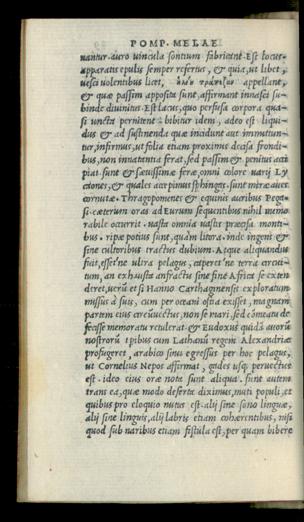 POMP. MELAE
nantur. auro uincula sontium fabricant. Est locus
apparatis epulis semper refertus, & quia, ut libet,
uesci uolentibus licet, appellant,
& quæ passim apposita sunt, affirmant innasci su
binde diuinitus. Est lacus, quo perfusa corpora qua
si uncta pernitent. bibitur idem, adeo est liqui
dus & ad sustinenda quæ incidunt aut immittun-
tur, infirmus, ut folia etiam proximis decisa frondi
bus, non innatantia ferat, sed passim & penitus acci
piat. sunt & sæuissimæ feræ, omni colore uarij Ly
ciones, & quales accepimus sphinges. sunt miræ aues
cornutæ. Thragopomenes & equinis auribus Pega
si. cæterum oras ad Eurum sequentibus nihil memo
rabile occurrit. uasta omnia uastis præcisa monti-
bus. ripæ potius sunt, quàm litora. inde ingens &
sine cultoribus tractus. dubium. Atque aliquandiu
fuit, esset'ne ultra pelagus, caperet'ne terra circui-
tum, an exhausta anfractu sine fine Africa se exten
deret, uerũ et si Hanno Carthaginensis exploratum
missus à suis, cum per oceani ostia exisset, magnam
partem eius circũuectus, non se mari, sed cõmeatu de
fecisse memoratu retulerat. & Eudoxus quidã auorũ
nostrorũ tpibus cum Lathurũ regem Alexandriæ
profugeret, arabico sinu egressus per hoc pelagus,
ut Cornelius Nepos affirmat, gades usq; peruectus
est. ideo eius oræ nota sunt aliqua. sunt autem
trans ea, quæ modo deserta diximus, muti populi, et
quibus pro eloquio nutus est. alij sine sono linguæ,
alij sine linguis, alij labris etiam cohærentibus, nisi
quod sub naribus etiam fistula est, per quam bibere